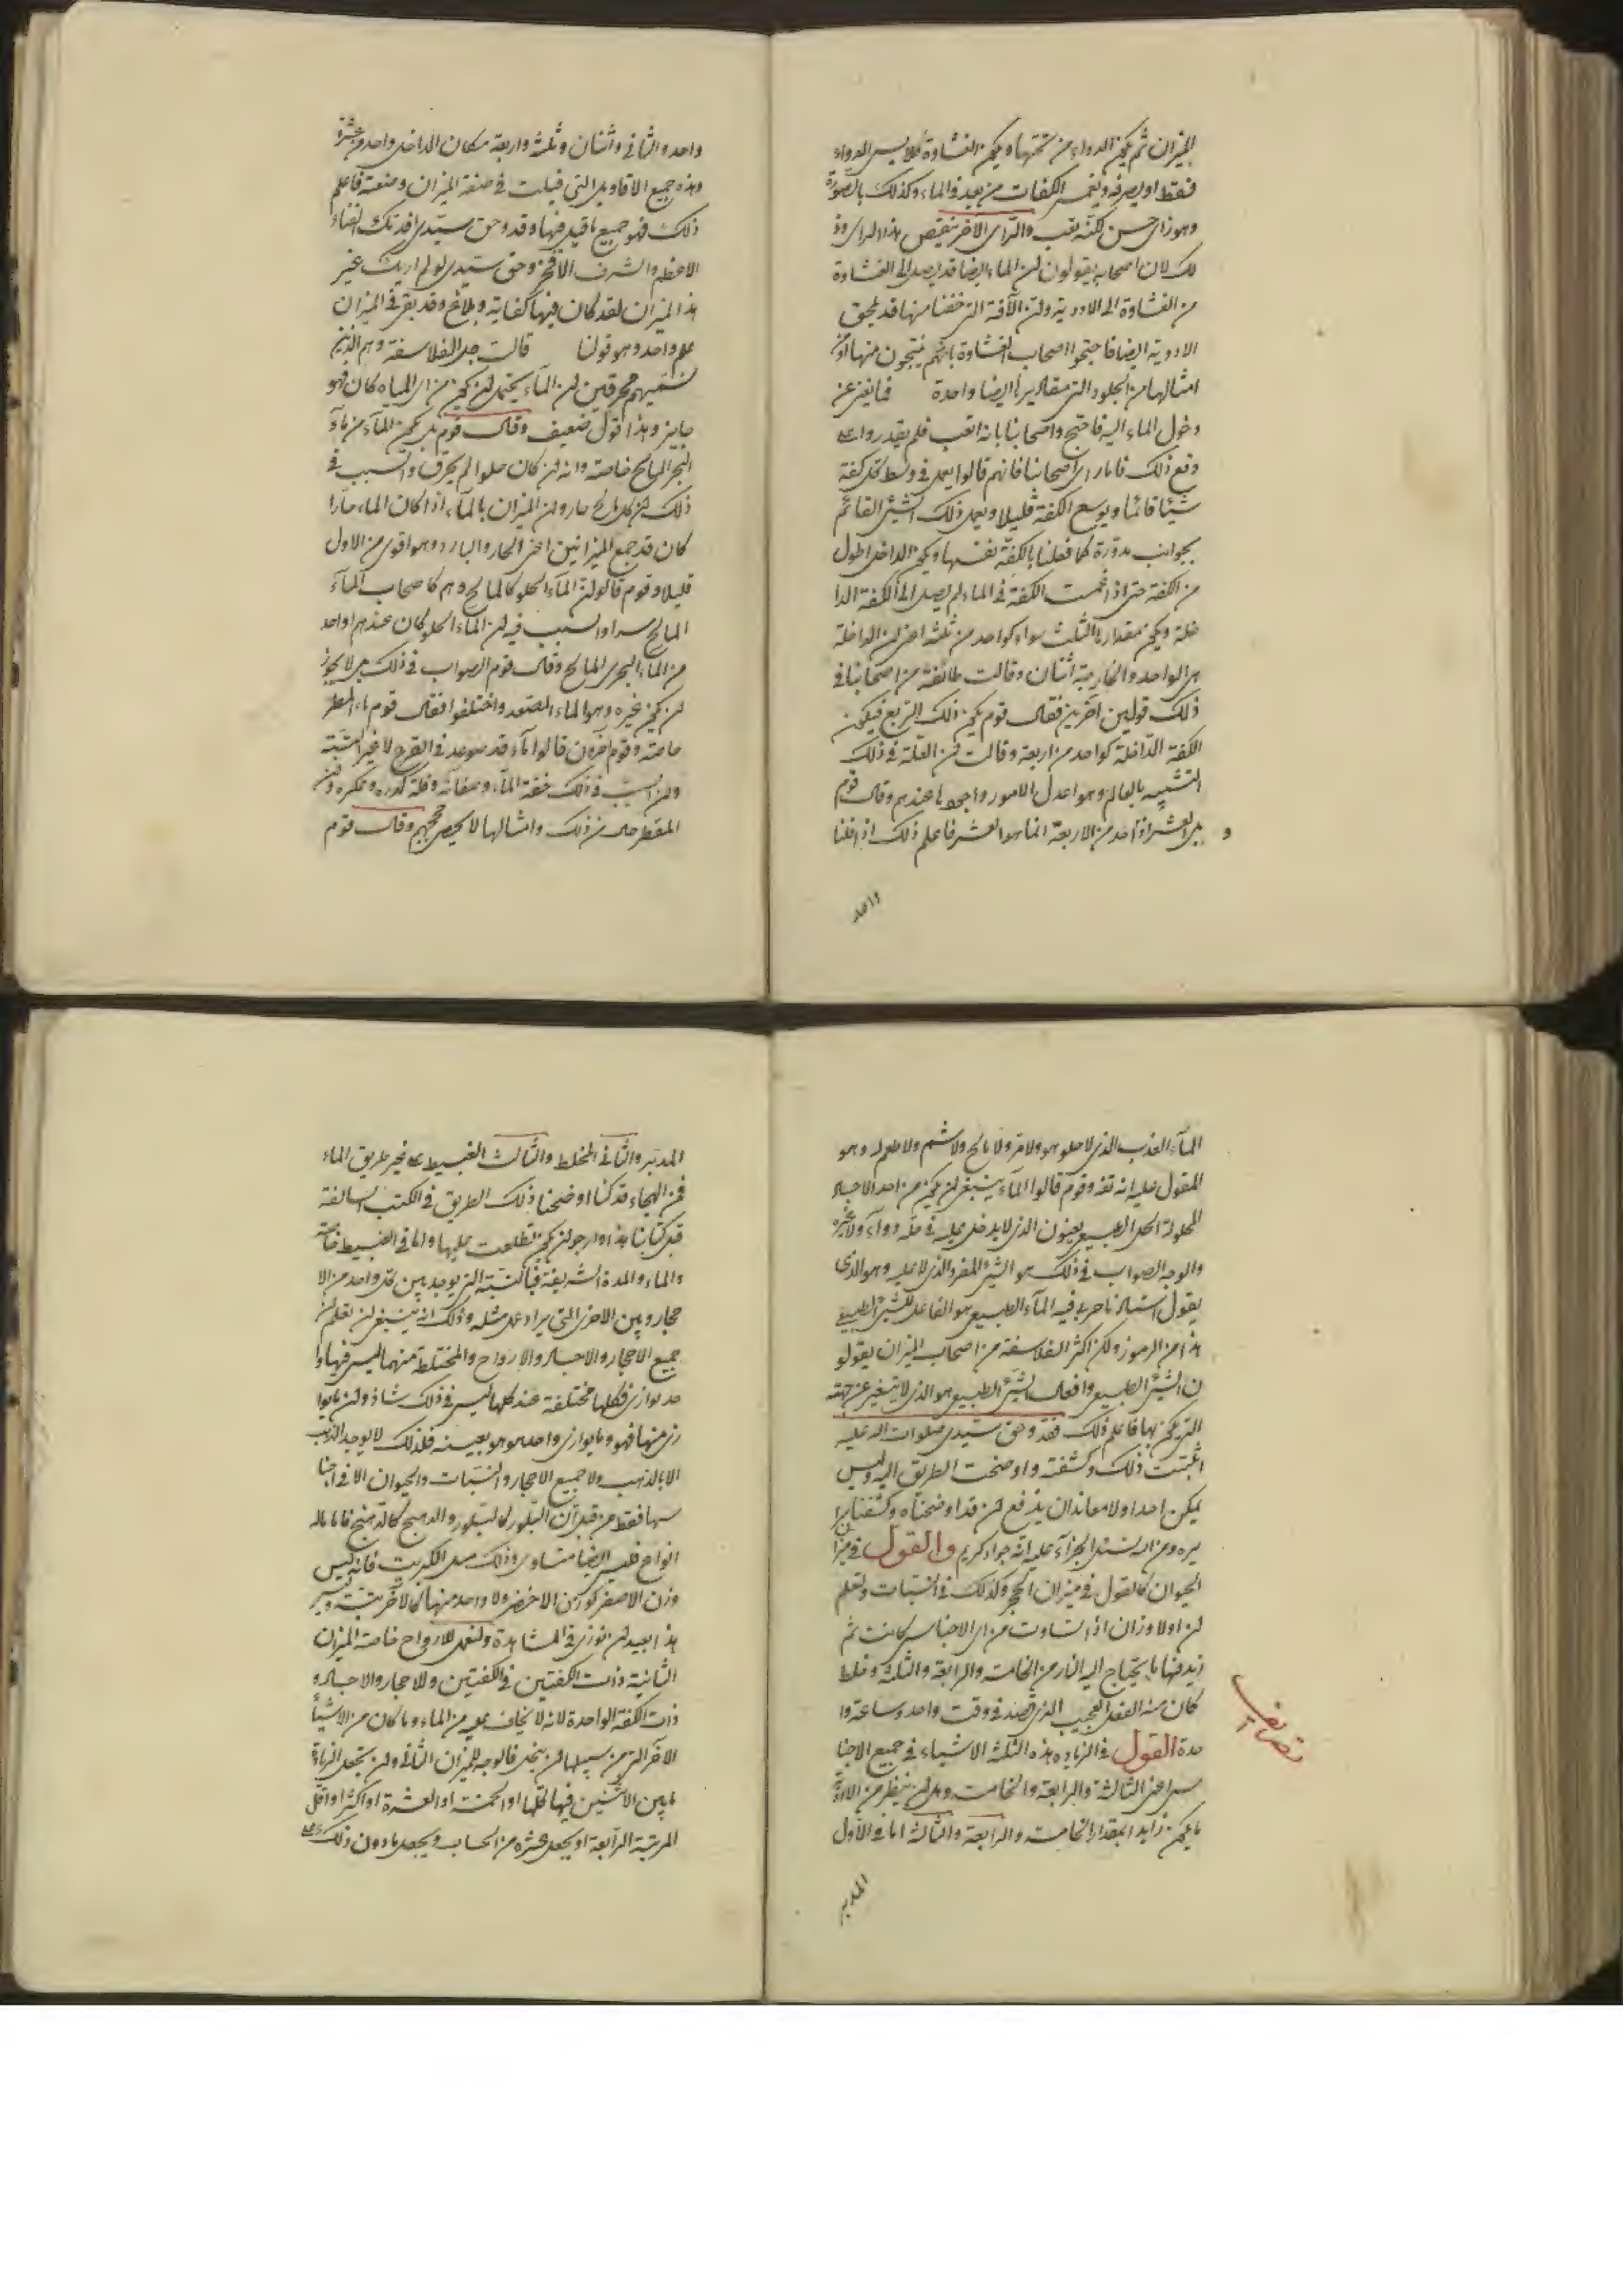 الميزان ثم يكون الدواء من تحتها ويكون الغشاوة لئلا يمس الدواء
فقط او يصرفه ويغمس الكفات من بعيد في الماء وكذلك بالصورة
وهو رأى حسن لكنه تعب والرأى الآخر ينقض هذا الرأى وذ
لك لان اصحابه يقولون ان الماء ايضا قد يصل الى الغشاوة
من الغشاوة الى الادوية وان الآفة التي خفنا منها قد تلحق
الادوية ايضا فاحتجوا اصحاب الغشاوة بانهم ينتجون منها او من
امثالها من الجلود التي مقاديرها ايضا واحدة فما يغنى عن
دخول الماء اليه فاحتج واصحابنا بانه اتعب فلم يقدروا على
دفع ذلك فاما رأى اصحابنا فانهم قالوا يعمل في وسط كل كفة
شيئا قائما ويوسع الكفة قليلا ويعمل ذلك الشئ القائم
بجوانب مدورة كما فعلنا بالكفة نفسها ويكون الداخل اطول
من الكفة حتى اذا غمست الكفة في الماء لم يصل الى الكفة الدا
خلة ويكون مقدارها الثلث سواء كواحد من ثلثة اعنى ان الداخلة
هى الواحد والخارجية اثنان وقالت طائفة من اصحابنا في
ذلك قولين آخرين فقال قوم يكون ذلك الربع فيكون
الكفة الداخلة كواحد من اربعة وقالت ان العلة في ذلك
التشبيه بالعالم وهو اعدل الامور واجودها عندهم وقال قوم
بل العشر اذ احد من الاربعة انما هو العشر فاعلم ذلك اذ قلنا
واحد
واحد والثانى واثنان وثلثة واربعة مكان الداخل واحد من عشرة
وهذه جميع الاقاويل التي قيلت في صفة الميزان وصنعته فاعلم
ذلك فهو جميع ما قيل فيها وقد وحق سيدى افدتك الغناء
الاعظم والشرف الافخر وحق سيدى لو لم اريك غير
هذا الميزان لقد كان فيها كفاية وبلاغ وقد بقى في الميزان
علم واحد وهو قولنا قالت جل الفلاسفة وهم الذين
نسميهم محرقين ان الماء يحتمل ان يكون من اى المياه كان فهو
جايز وهذا قول ضعيف وقال قوم بل يكون الماء من ماء
البحر المالح خاصة وانه ان كان حلوا لم يحرق والسبب في
ذلك ان كل مالح حار وان الميزان بالماء اذا كان الماء حارا
كان قد جمع الميزانين اعنى الحار والبارد وهو اقوى من الاول
قليلا وقوم قالوا ان الماء الحلو كالمالح وهم كاصحاب الماء
المالح سواء والسبب فيه ان الماء الحلو كان عندهم اواحد
من الماء البحرى المالح وقال قوم الصواب في ذلك بل لا يجوز
ان يكون غيره وهو الماء المصعد واختلفوا فقال قوم ماء المطر
خاصة وقوم آخرون قالوا ماء قد صوعد في القرع لا غير البتة
وان السبب في ذلك خفة الماء وصفائه وقلة كدره وعكره وان
المقطر خلى من ذلك وامثالها لا يحصى حججهم وقال قوم
الماء العذب الذى لا حلو هو ولا مر ولا مالح ولا شم ولا طعم له وهو
المقول عليه انه تفه وقوم قالوا الماء ينبغى ان يكون من احد الاجساد
المحلولة الحل الطبيعى يعنون الذى لا يدخل عليه في حله دواء ولا غيره
والوجه الصواب في ذلك هو الشئ المفرد الذى لا عليه وهو الذى
يقول استاذنا حربى فيه الماء الطبيعى هو الفاعل للشئ الطبيعى
هذا من الرموز ولكن اكثر الفلاسفة من اصحاب الميزان يقولو
ن الشئ الطبيعى وافعال الشئ الطبيعى هو الذى لا يتغير عن جهته
التي يكون بها فاعلم ذلك فقد وحق سيدى صلوات الله عليه
اثبتت ذلك وكشفته واوضحت الطريق اليه وليس
يمكن احدا ولا معاندا ان يدفع ان قد اوضحناه وكشفناه
يره ومن الله نسئل الجزاء عليه انه جواد كريم والقول في ميزان
الحيوان كالقول في ميزان الحجر وكذلك في النبات ولتعلم
ان اولا وزان اذا تساوت من اى الاجناس كانت ثم
زيد فيها ما يحتاج اليه النار من الخامسة والرابعة والثلثة وخلط
كان منه الفعل العجيب الذى قصد في وقت واحد وساعة وا
حدة القول في الزيادة هذه الثلثة الاشياء في جميع الاجنا
س اعنى الثالثة والرابعة والخامسة وهل ان ينظر من الادوية
ما يكون زايد المقدار الخامسة والرابعة والثالث اما في الاول
تصاريف
المدبر
المدبر والثانى المخلط والثالث الغبيط على غير طريق الماء
فمن الهجاء قد كنا اوضحنا ذلك الطريق في الكتب السالفة
قبل كتابنا هذا وارجو ان يكون تطلعت عليها واما في الغبيط خاصة
والماء والمدة الشريفة فبالنسبة التي يوجد بين كل واحد من الا
حجار وبين الاخرى التي يراد عمل مثله وذلك انه ينبغى ان تعلم ان
جميع الاحجار والاجساد والارواح والمختلطة منهما ليس فيها وا
حد يوازى فكلها مختلفة عند كلها ليس في ذلك شاذ وان ما يوا
زى منها فهو وما يوازى واحد هو هو بعينه فلذلك لا يوجد الذهب
الا بالذهب ولا جميع الاحجار والنبات والحيوان الا في اجنا
سها فقط من قبل ان البلور كالبلور والدهنج كالدهنج فاما ماله
انواع فليس ايضا متساوى وذلك مثل الكبريت فانه ليس
وزن الاصفر كوزن الاخضر ولا واحد منها كالآخر بتة وليس
هذا بعيد ان توزن في المشاهدة وليعمل للارواح خاصة الميزان
الثانية ذات الكفتين في الكفتين وللاحجار والاجساد و
ذات الكفة الواحدة لانه لا يخاف عليه من الماء وما كان من الاشياء
الاخر التي من سبيلها ان ينحل فالوجه الميزان الثانى وان يجعل الزيادة
ما بين الاثنين فيها كلها او الخمسة او العشرة او اكثر او اقل
المرتبة الرابعة او يجعل عشرة من الحساب ويجعل ما دون ذلك على